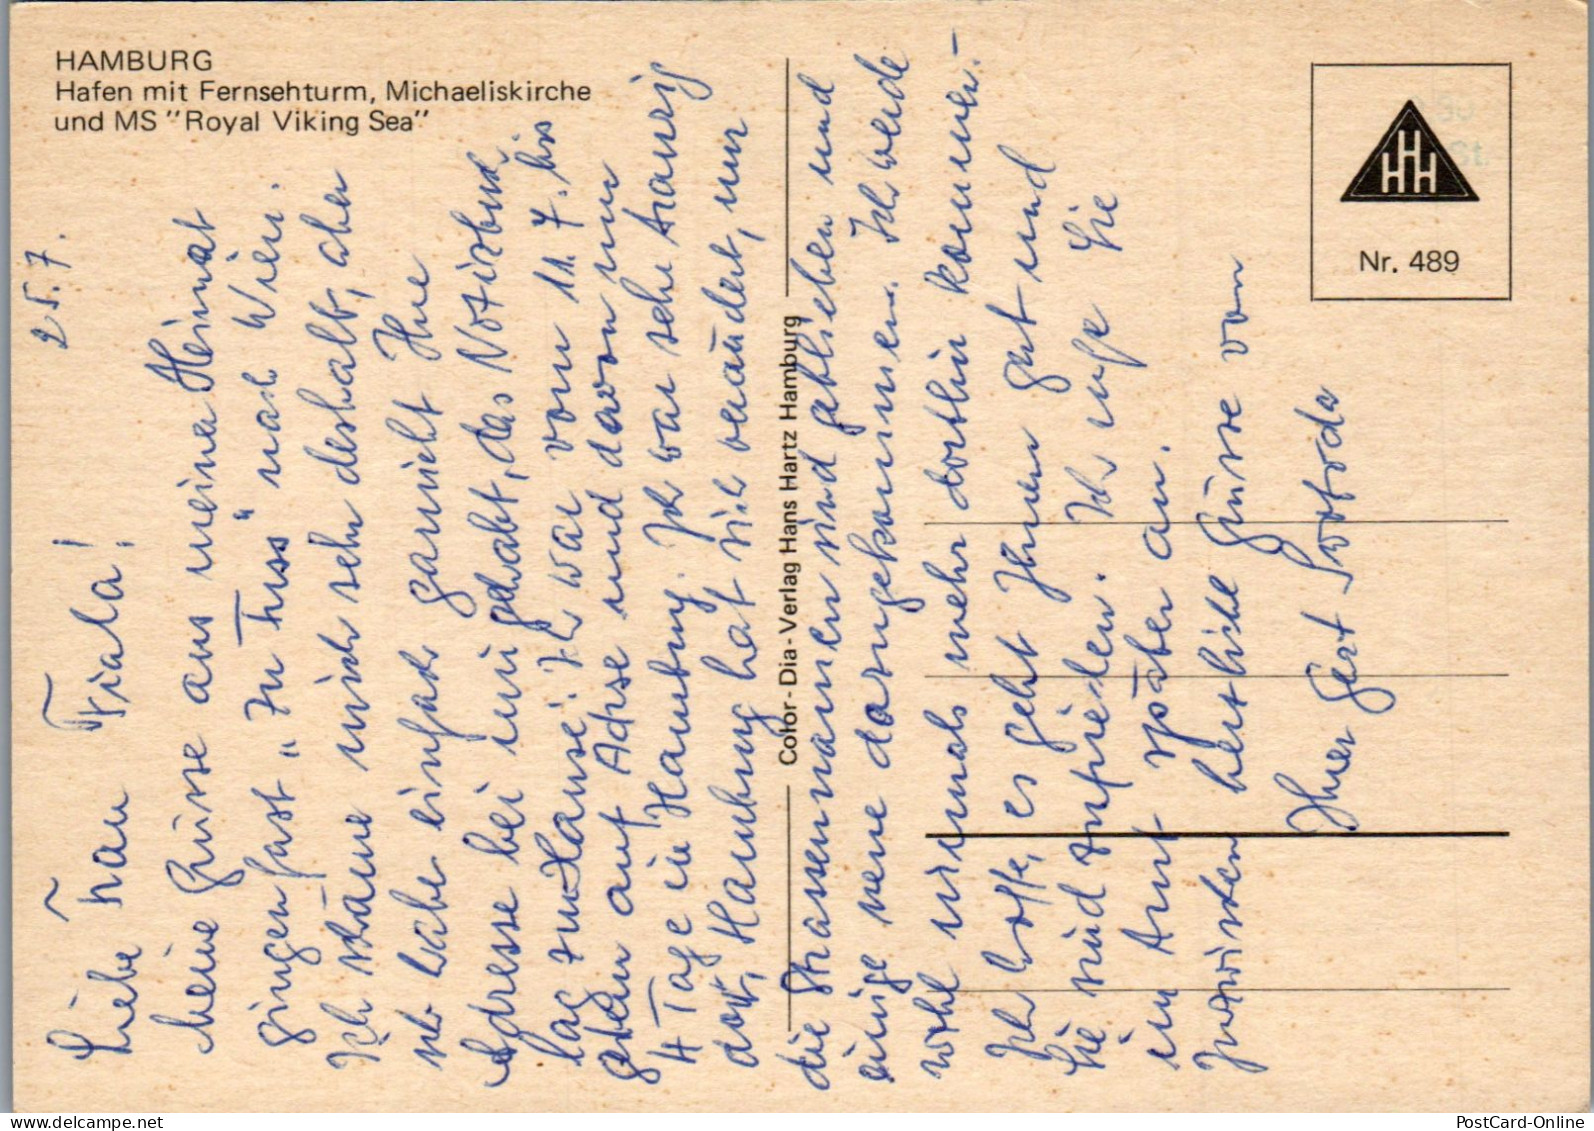 HAMBURG
Hafen mit Fernsehturm, Michaeliskirche
und MS "Royal Viking Sea"
Nr. 489
HHH
Color - Dia - Verlag Hans Hartz Hamburg
25. 7.
Liebe Frau Fiala!
Meine Grüsse aus meiner Heimat
gingen fast „zu Fuss" nach Wien.
Ich schäme mich sehr deshalb, aber
ich habe einfach garnicht Ihre
Adresse bei mir gehabt, das Notizbuch
lag zu Hause! Ich war vom 11. 7. bis
gestern auf Achse und davon nur
4 Tage in Hamburg. Ich war sehr traurig
dort, Hamburg hat sich verändert, nur
die Strassennamen sind geblieben und
einige neue dazugekommen. Ich werde
wohl niemals mehr dorthin kommen.-
Ich hoffe, es geht Ihnen gut und
Sie sind zufrieden. Ich rufe Sie
im Amt später an.
Inzwischen herzliche Grüsse von
Ihrer Gert
PostCard-Online